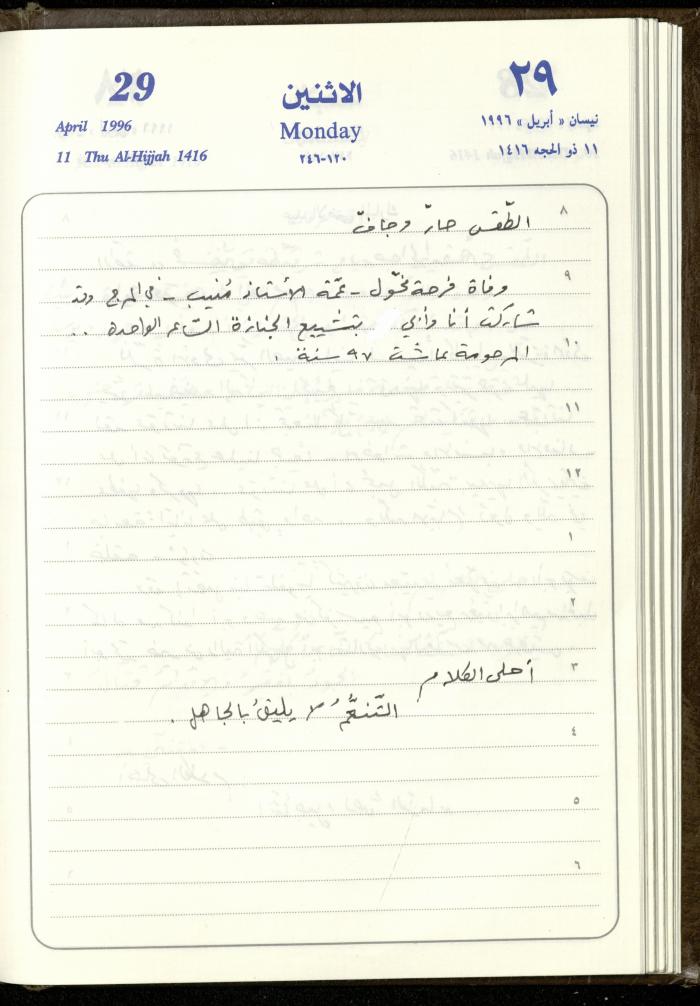 29
April 1996
11 Thu Al-Hijjah 1416
الاثنين
Monday
١٢٠-٢٤٦
٢٩
نيسان « أبريل » ١٩٩٦
١١ ذو الحجه ١٤١٦
٨
الطّقس حارّ وجافّ
٩
وفاة فرحة نخّول - عمّة الأستاذ مُنيب - في المرج وقد
شاركت أنا وأبي بتشييع الجنازة السّاعة الواحدة ..
١٠
المرحومة عاشت ٩٧ سنة .
١١
١٢
١
٢
٣
أحلى الكلام
التّنعُّمُ لا يليقُ بالجاهل .
٤
٥
٦